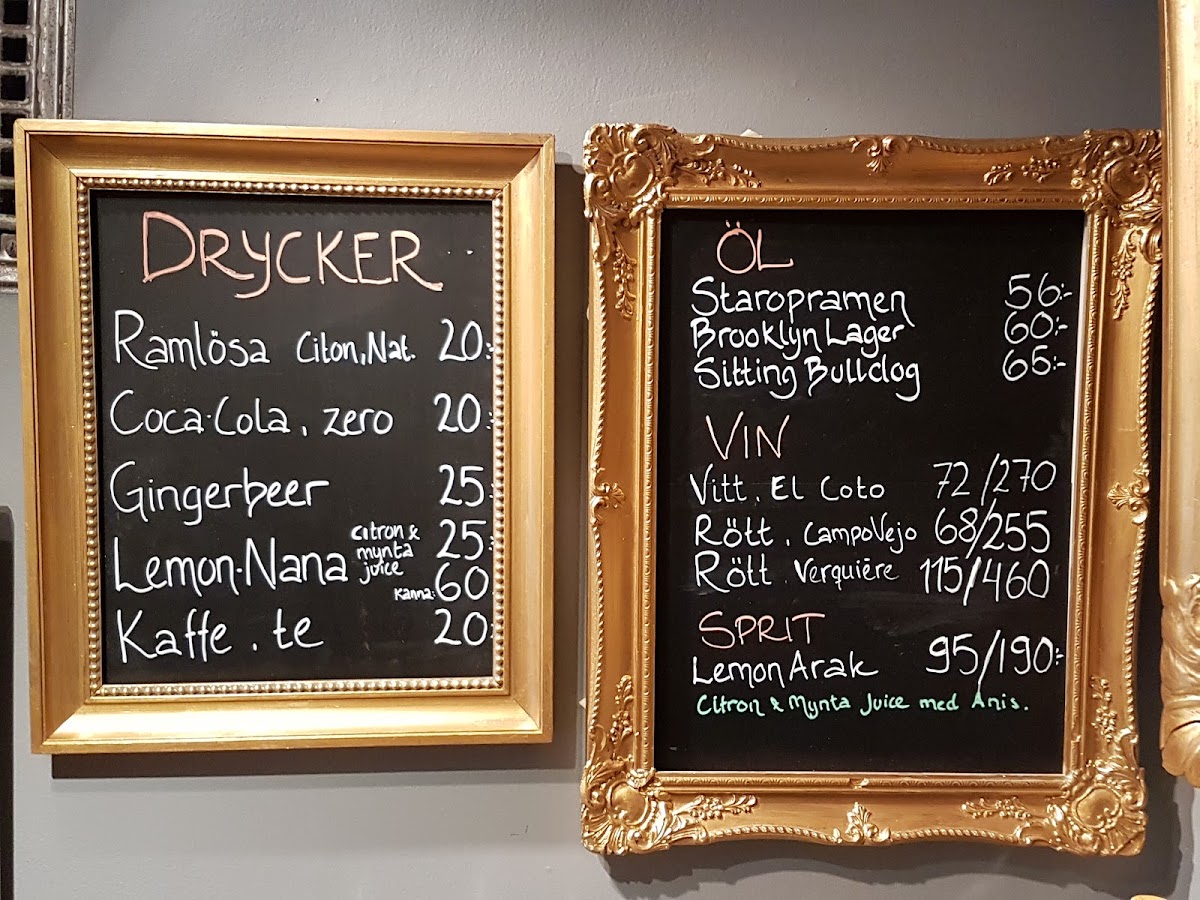 DRYCKER
Ramlösa Citon, Nat. 20:-
Coca-Cola, zero 20:-
Gingerbeer 25:-
Lemon-Nana citron & mynta juice 25:-
Kanna: 60:-
Kaffe, te 20:-
ÖL
Staropramen 56:-
Brooklyn Lager 60:-
Sitting Bulldog 65:-
VIN
Vitt, El Coto 72/270
Rött, CampoVejo 68/255
Rött, Verquière 115/460
SPRIT
Lemon Arak 95/190:-
Citron & Mynta Juice med Anis.